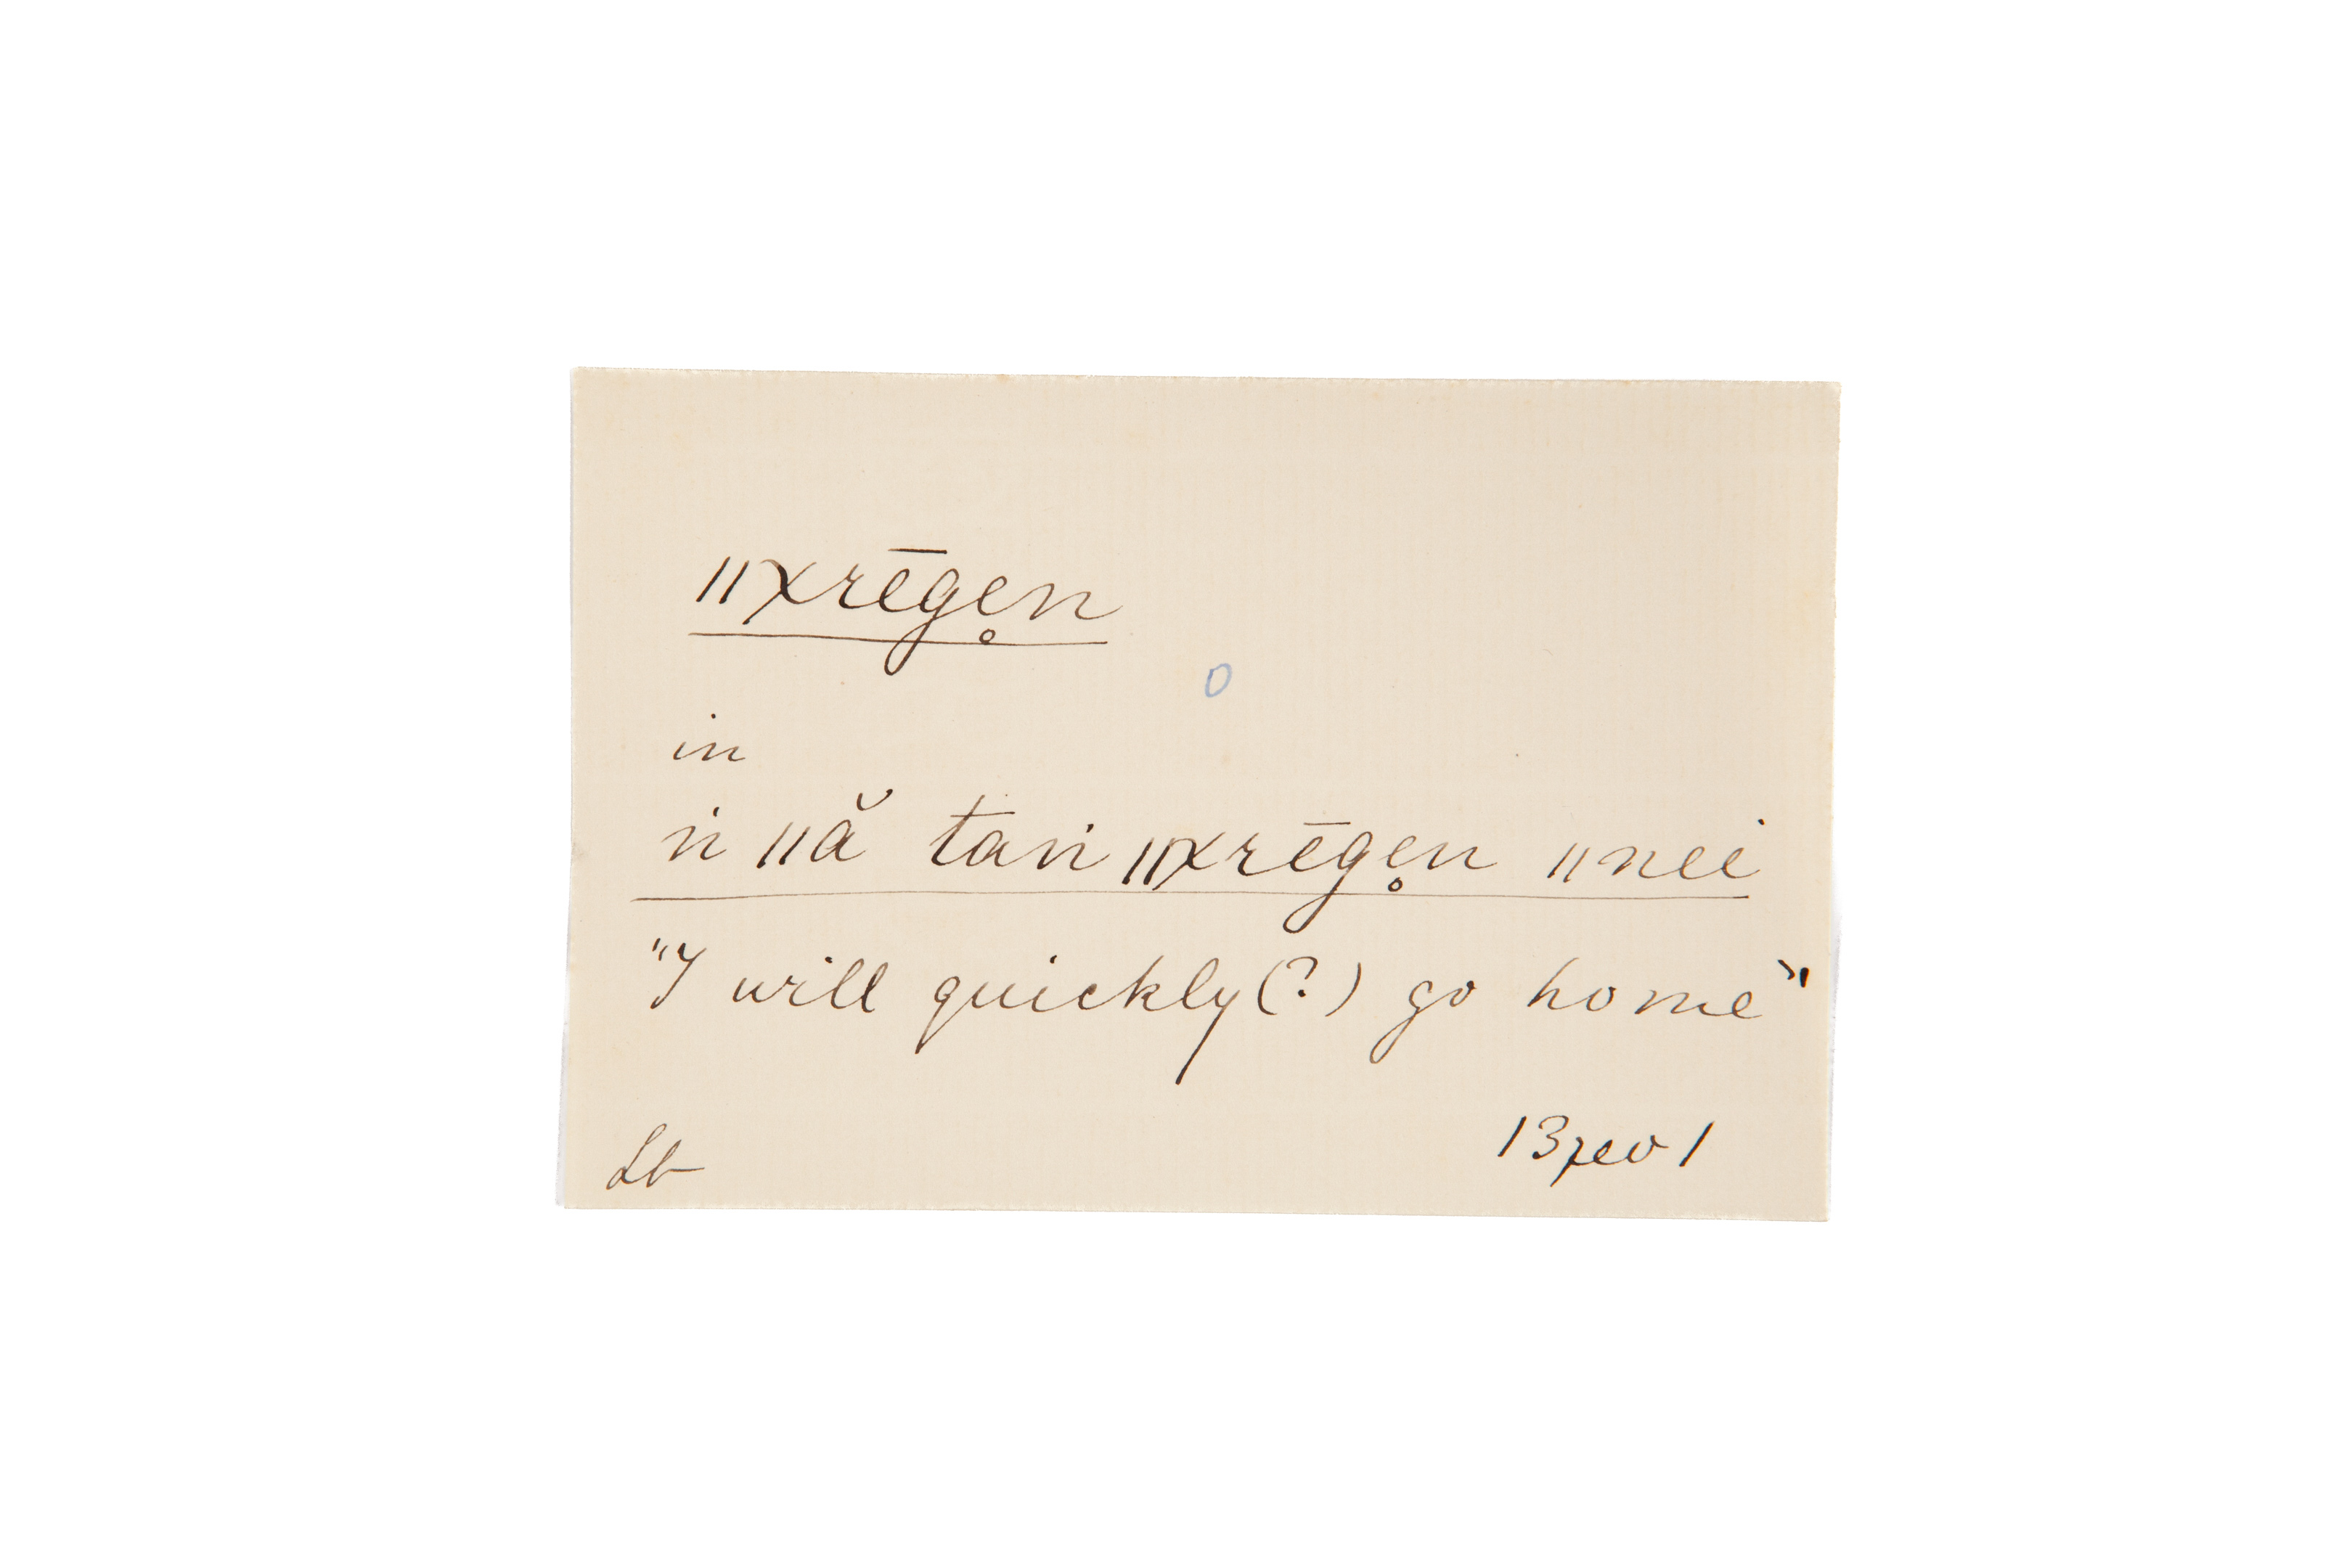 ǁxrēge̥n
o
in
ṅ ǁă taṅ ǁxrēge̥n ǁnei
"I will quickly(?) go home"
Lb
13rev 1